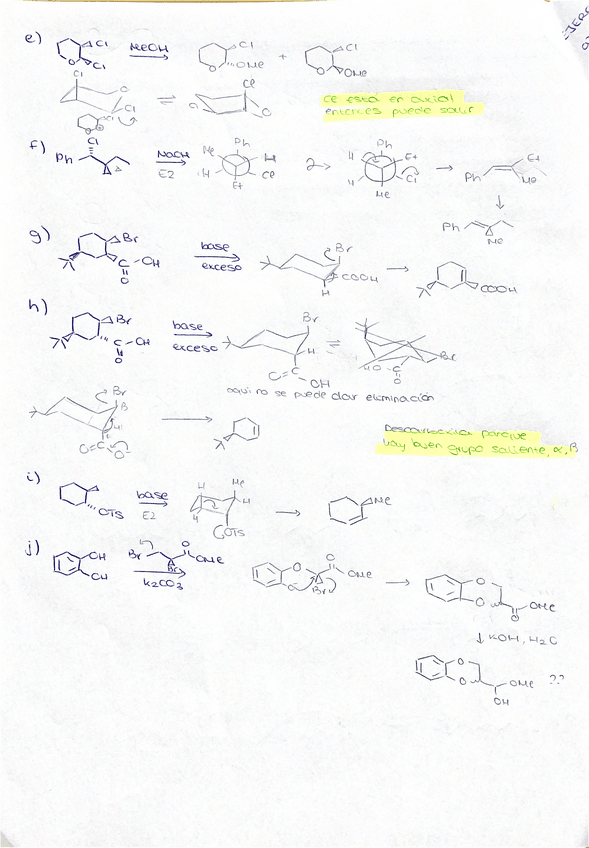 e)
Cl
Cl
MeOH
Cl
OMe
+
Cl
OMe
Cl
O
Cl
⇌
O
Cl
Ce está en axial
entonces puede salir
f)
Cl
Ph
NaOH
E2
Ph
Me
H
H
Cl
Et
Ph
H
Et
H
Cl
Me
Ph
Et
Me
Ph
Me
g)
Br
C
OH
O
base
exceso
Br
COOH
H
COOH
h)
Br
C
OH
O
base
exceso
Br
H
C
O
OH
⇌
Br
HO
C
O
aqui no se puede dar eliminación
Br
β
O
C
O⁻
Descarboxila porque
hay buen grupo saliente, α, β
i)
OTS
base
E2
H
Me
H
H
OTs
Me
j)
OH
OH
Br
O
OMe
Br
K2CO3
O
O
O
OMe
Br
O
O
OMe
O
↓ KOH, H2O
O
O
OMe
OH
??